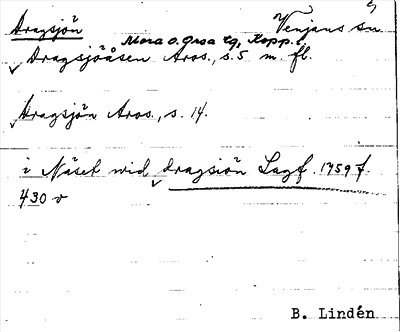 Dragsjön Venjans sn
Mora o. Orsa tg, Kopp. l.
Dragsjöåsen Aros., s. 5 m. fl.
Dragsjön Aros., s. 14.
i Näset wid Dragsiön Lagf. 1759 f.
430 v
B. Lindén